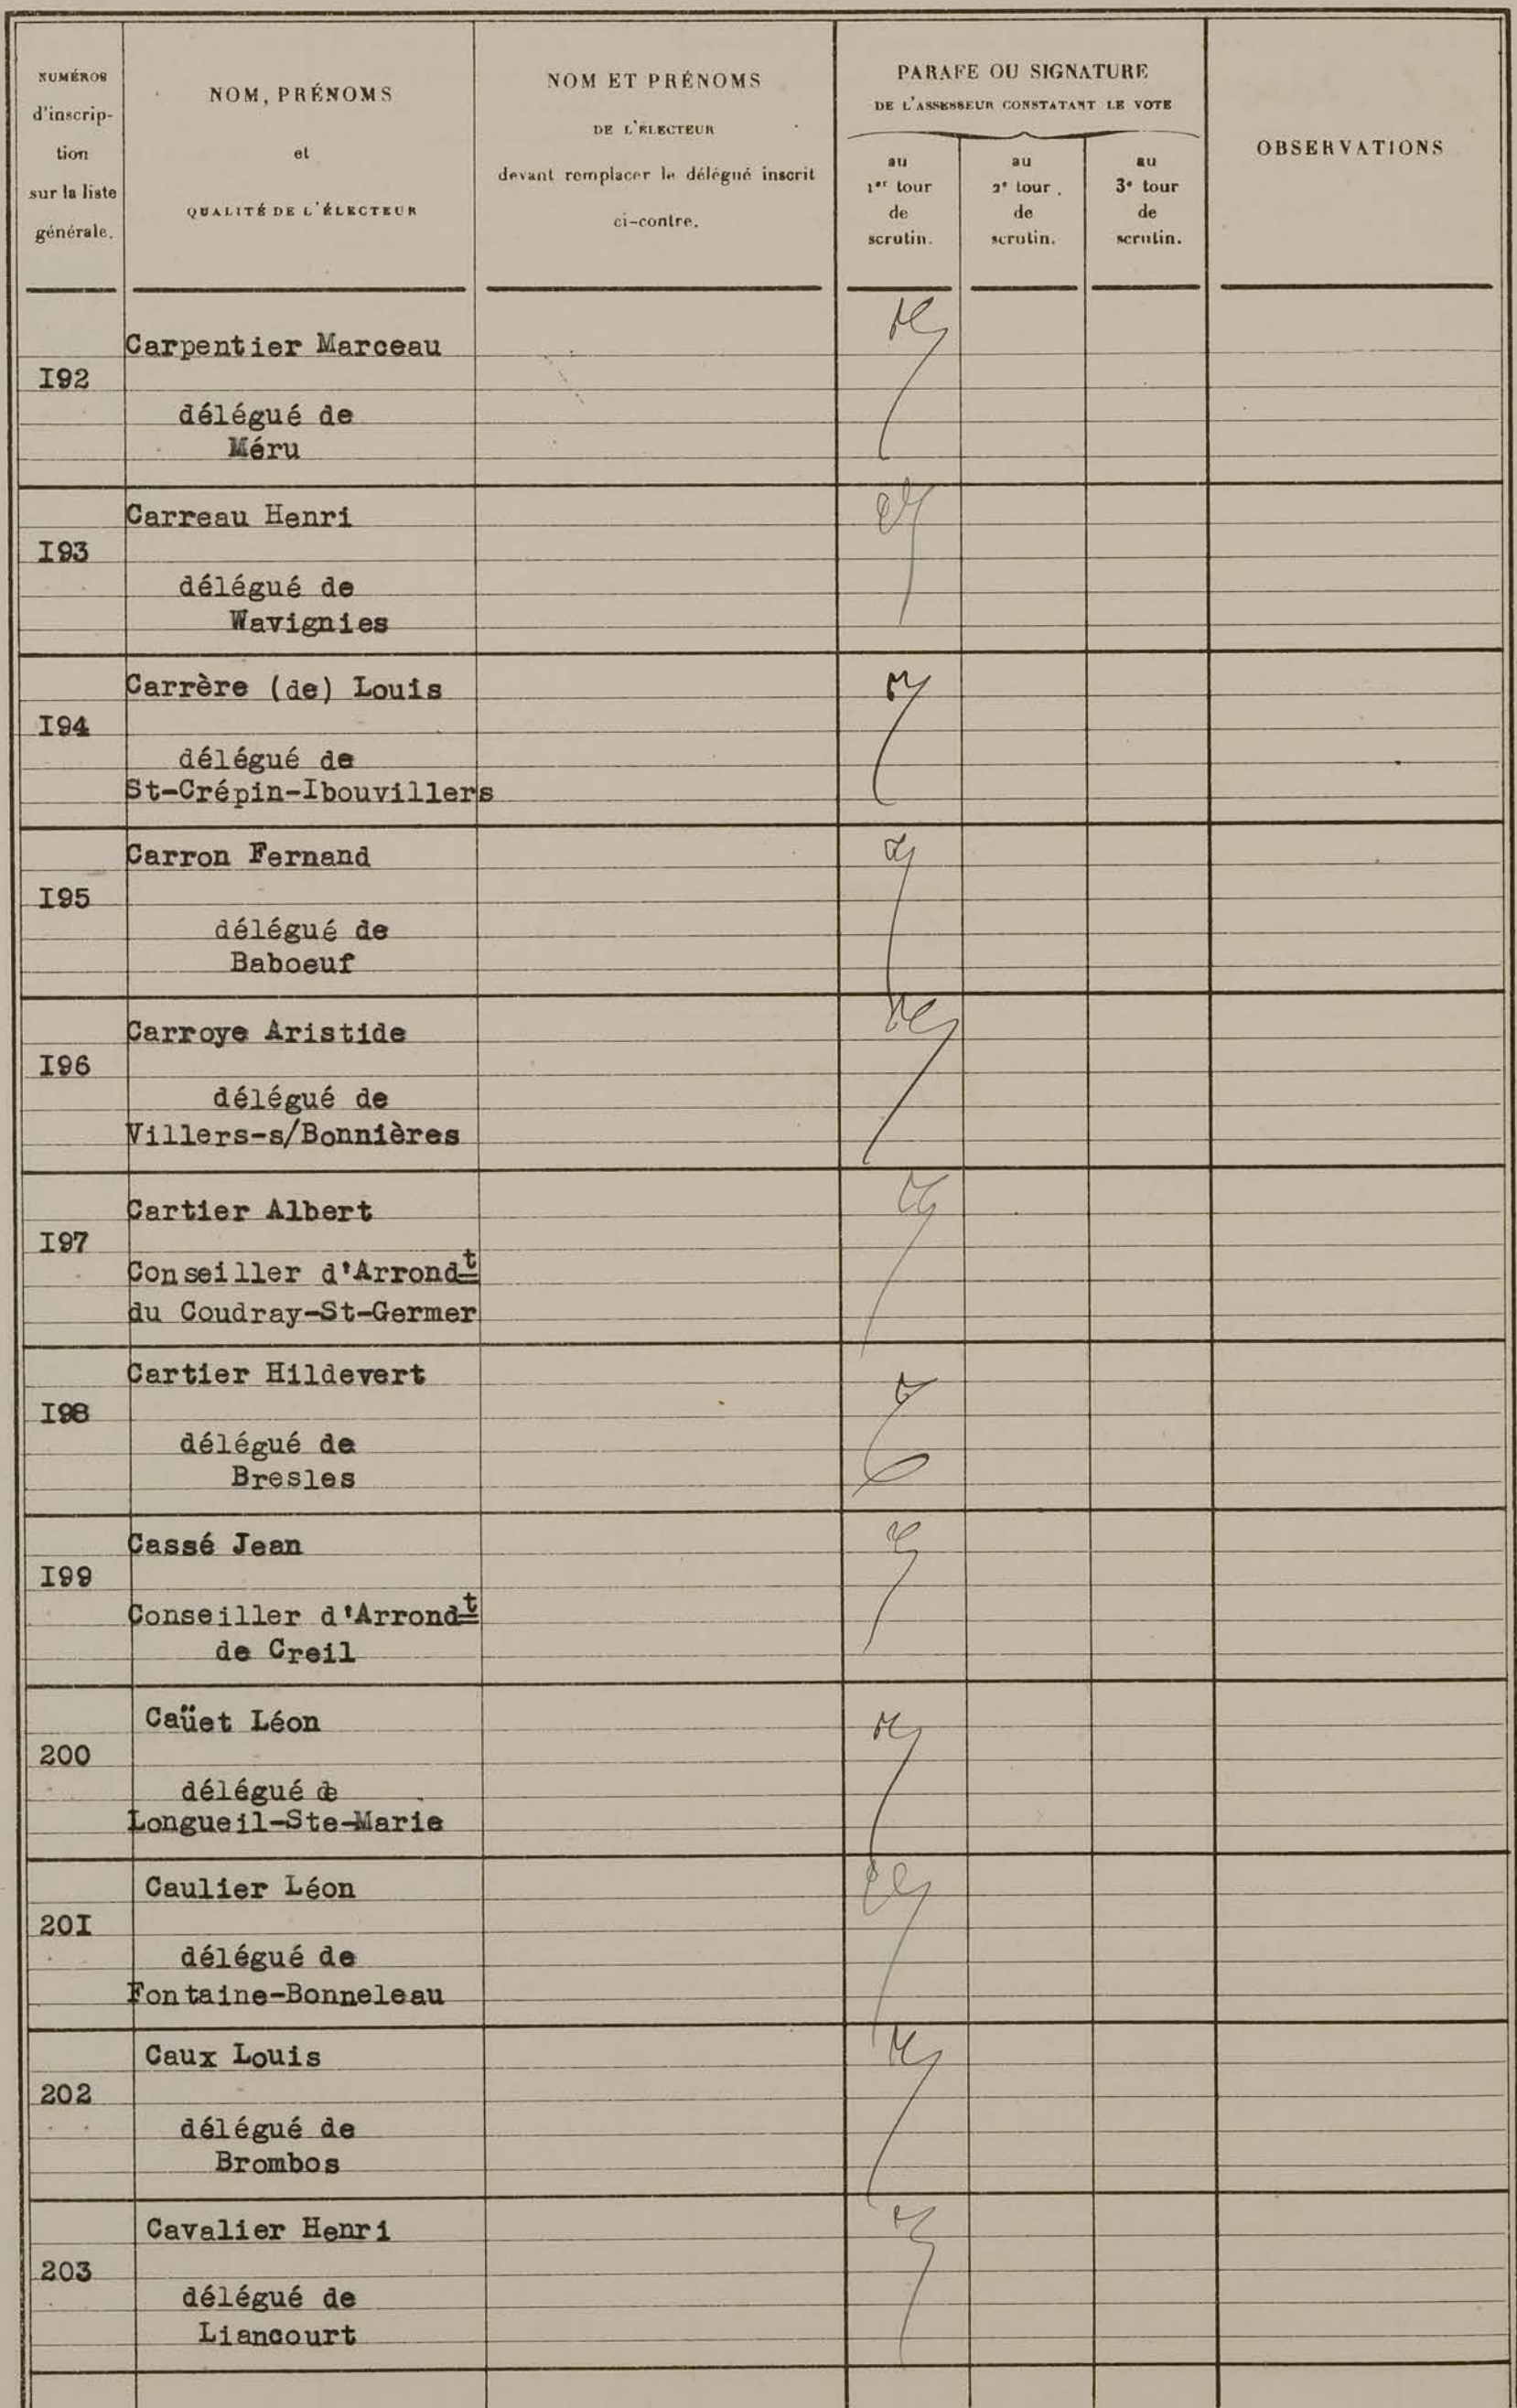 NUMÉROS
d'inscrip-
tion
sur la liste
générale.
NOM, PRÉNOMS
et
QUALITÉ DE L'ÉLECTEUR
NOM ET PRÉNOMS
DE L'ÉLECTEUR
devant remplacer le délégué inscrit
ci-contre.
PARAFE OU SIGNATURE
DE L'ASSESSEUR CONSTATANT LE VOTE
au
1er tour
de
scrutin.
au
2e tour.
de
scrutin.
au
3e tour
de
scrutin.
OBSERVATIONS
Carpentier Marceau
I92
délégué de
Méru
Carreau Henri
I93
délégué de
Wavignies
Carrère (de) Louis
I94
délégué de
St-Crépin-Ibouvillers
Carron Fernand
I95
délégué de
Baboeuf
Carroye Aristide
I96
délégué de
Villers-s/Bonnières
Cartier Albert
I97
Conseiller d'Arrondt
du Coudray-St-Germer
Cartier Hildevert
I98
délégué de
Bresles
Cassé Jean
I99
Conseiller d'Arrondt
de Creil
Caüet Léon
200
délégué de
Longueil-Ste-Marie
Caulier Léon
20I
délégué de
Fontaine-Bonneleau
Caux Louis
202
délégué de
Brombos
Cavalier Henri
203
délégué de
Liancourt